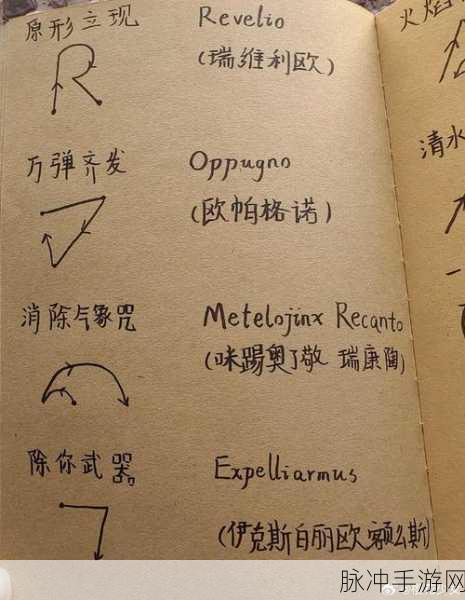 原形立现 Revelio
(瑞维利欧)
万弹齐发 Oppugno
(欧帕格诺)
消除气象咒 Metelojinx Recanto
(咪踢奥了敬 瑞康陶)
除你武器。 Expelliarmus
(伊克斯白丽欧额么斯)
火焰
清水
脉冲手游网